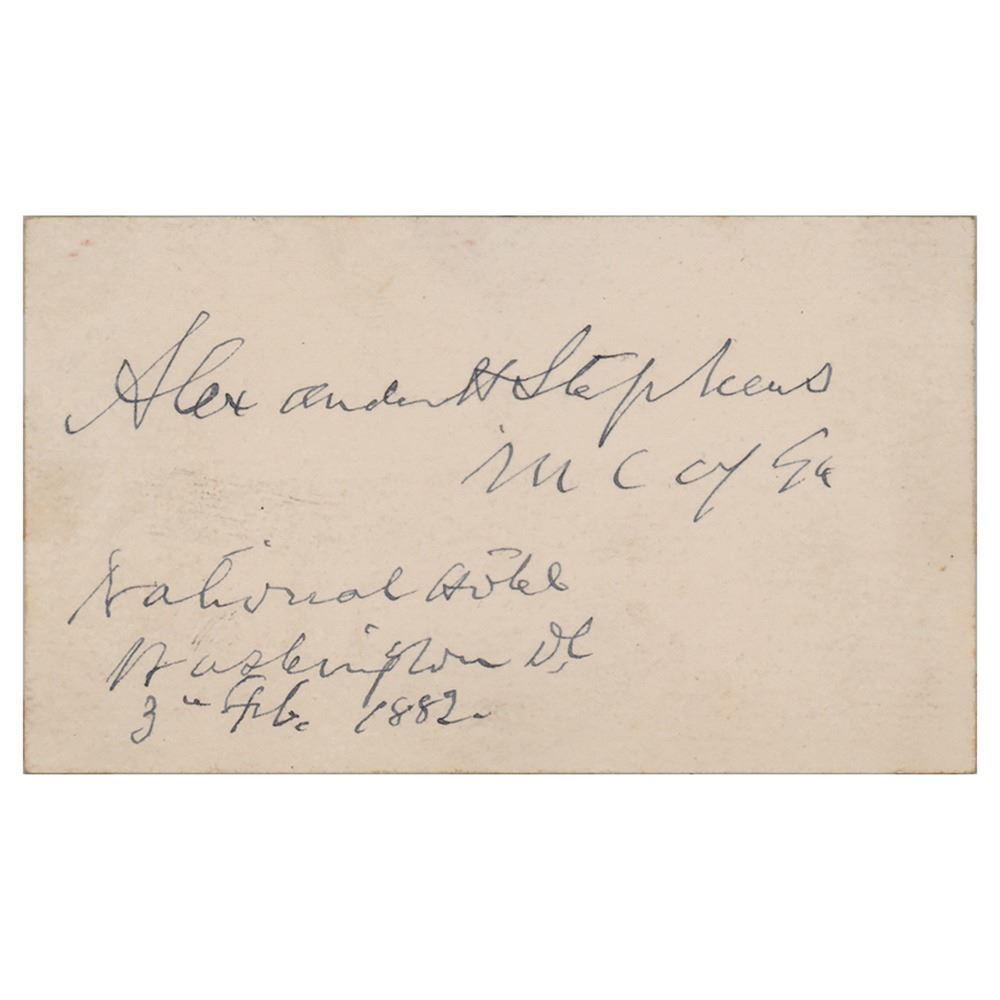 Alexander H Stephens
M C of Ga
National Hotel
Washington D.C
3rd Feb. 1882.